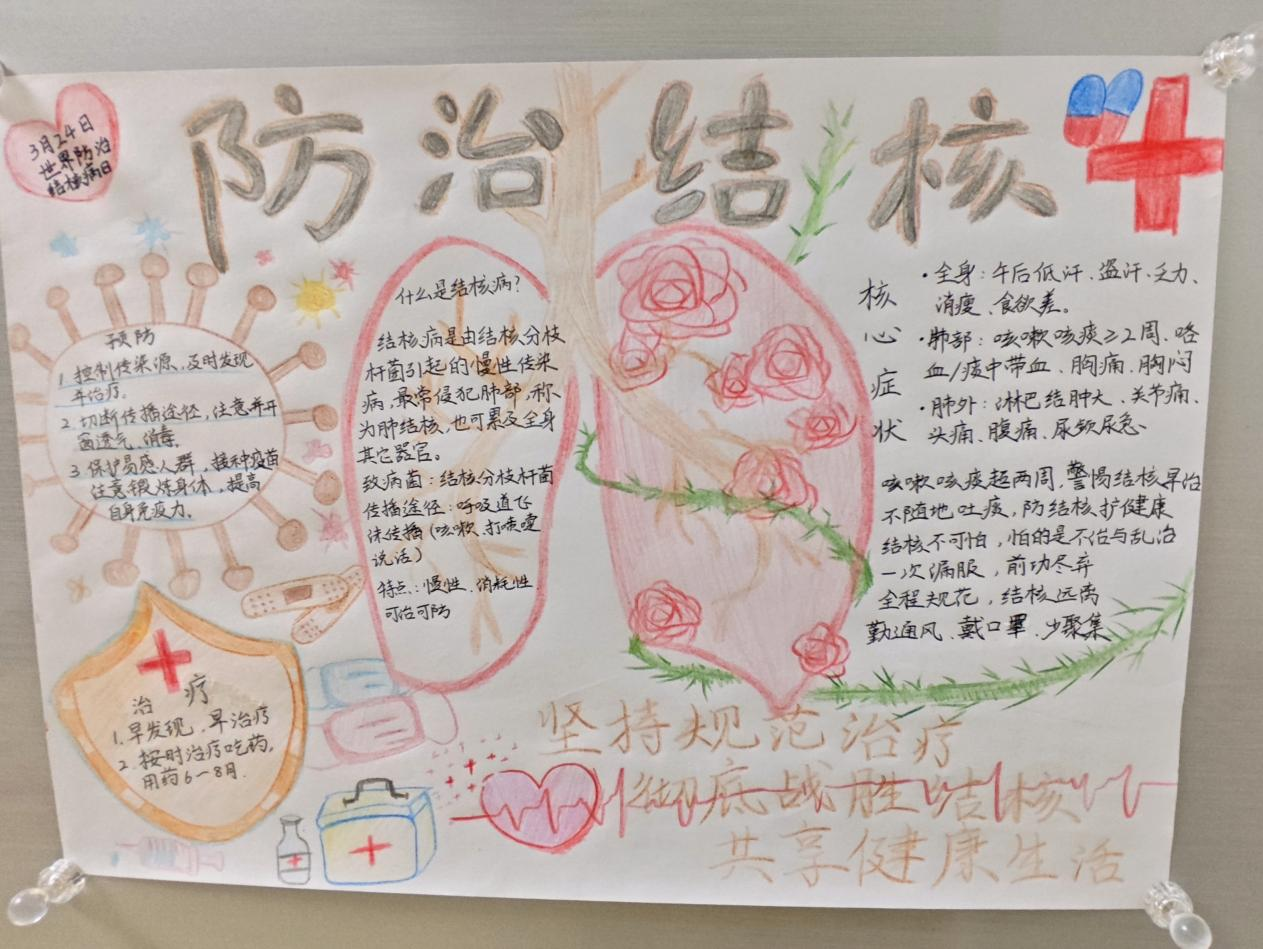 防治结核
3月24日
世界防治
结核病日
预防
1. 控制传染源,及时发现
并治疗。
2. 切断传播途径,注意开
窗透气、消毒。
3 保护易感人群,接种疫苗
注意锻炼身体,提高
自身免疫力。
治疗
1. 早发现、早治疗
2. 按时治疗吃药,
用药6-8月.
什么是结核病?
结核病是由结核分枝
杆菌引起的慢性传染
病,最常侵犯肺部,称
为肺结核,也可累及全身
其它器官。
致病菌:结核分枝杆菌
传播途径:呼吸道飞
沫传播(咳嗽、打喷嚏
说话)
特点:慢性、消耗性
可治可防
核心症状
·全身:午后低汗、盗汗、乏力、
消瘦、食欲差。
·肺部:咳嗽咳痰≥2周、咯
血/痰中带血、胸痛、胸闷
·肺外:淋巴结肿大、关节痛、
头痛、腹痛、尿频尿急、
咳嗽咳痰超两周,警惕结核早治
不随地吐痰,防结核护健康
结核不可怕,怕的是不治与乱治
一次漏服,前功尽弃
全程规范,结核远离
勤通风、戴口罩、少聚集
坚持规范治疗
彻底战胜结核
共享健康生活